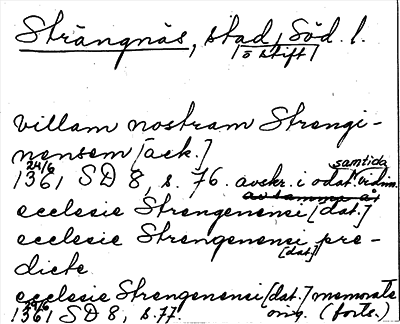 Strängnäs, stad, Söd. l.
o stift
villam nostram Strengi-
nensem [ack.]
24/6
1361 SD 8, s. 76. avskr. i odat. samtida vidim.
av samma år
ecclesie Strengenensi [dat.]
ecclesie Strengenensi pre-
dicte [dat.]
ecclesie Strengenensi [dat.] memorate
24/6
1361 SD 8, s. 77 orig. (forts.)